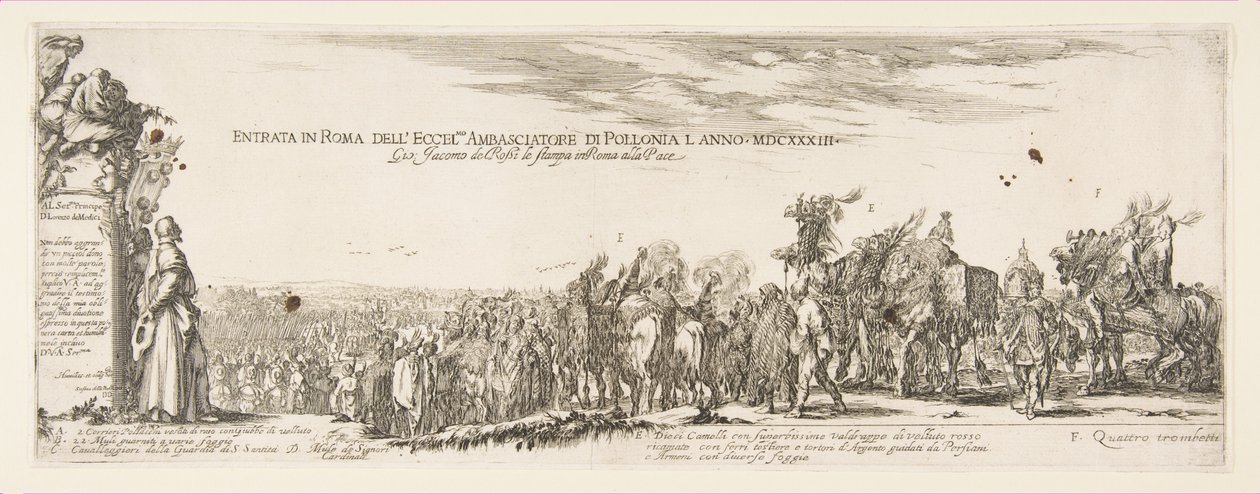 ENTRATA IN ROMA DELL' ECCEL.MO AMBASCIATORE DI POLLONIA L ANNO · MDCXXXIII·
Gio; Jacomo de Rossi le stampa in Roma alla Pace
AL Ser.mo Principe
D Lorenzo de Medici
Non debbo aggran=
dir un piccol dono
con molte parole,
supplico V. A. ad ag
gradire il testimo
nio della mia obli
gatissima diuotione
espresso in questa po
uera carta, et humil
mente inchino
D. V. A. Ser.ma
E
E
F
A. 2 Corrieri Pollacchi vestiti di raso con Giubbe di velluto
B. 22 Muli guarniti a varie foggie
C. Caualleggieri della Guardia di S. Santità D. Mule de Signori
Cardinali
E. Dieci Camelli con superbissime valdrappe di velluto rosso
ricamate con ferri testiere e tortori d'Argento guidati da Persiani
e Armeni con diuerse foggie
F. Quattro trombetti